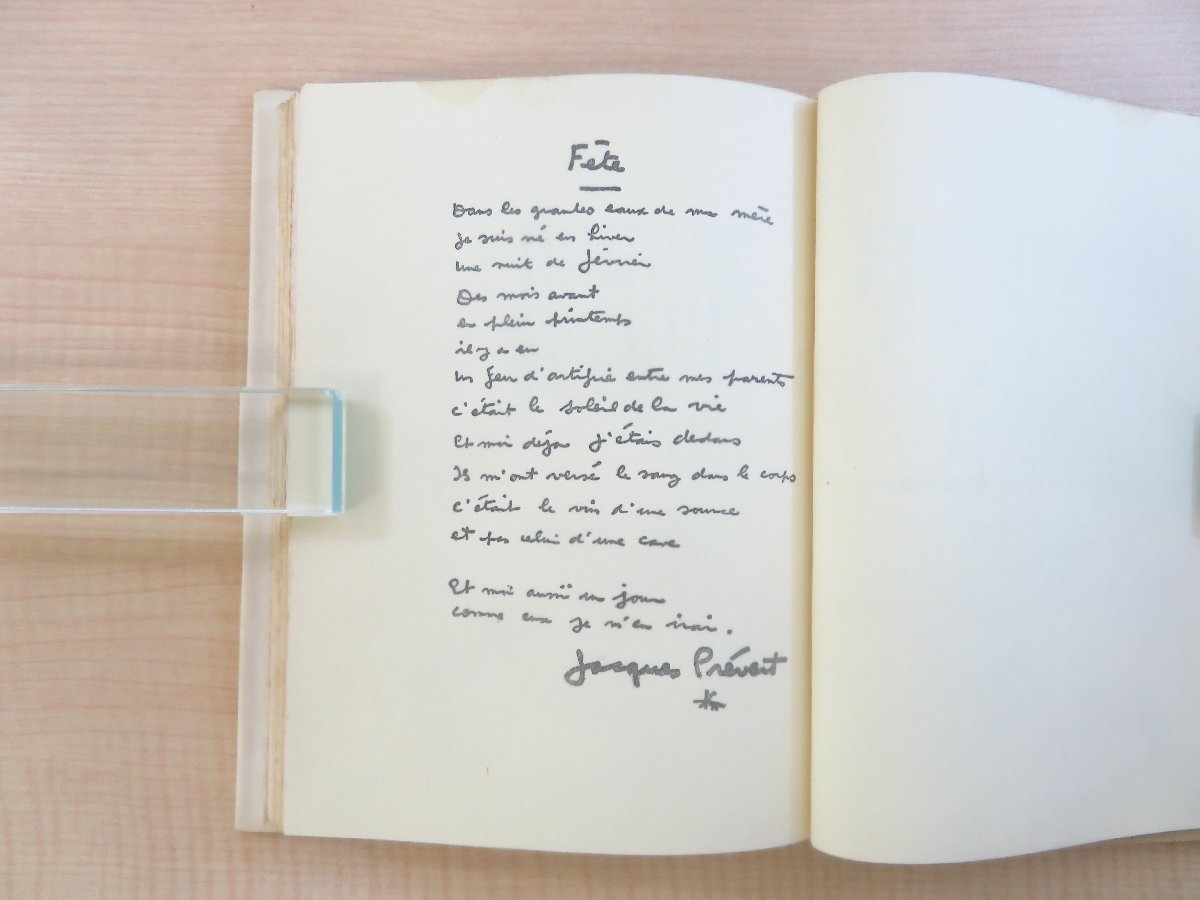 Fête
Dans les grandes eaux de ma mère
je suis né en hiver
une nuit de février
Des mois avant
en plein printemps
il y a eu
un feu d'artifice entre mes parents
c'était le soleil de la vie
Et moi déjà j'étais dedans
Ils m'ont versé le sang dans le corps
c'était le vin d'une source
et pas celui d'une cave
Et moi aussi un jour
comme eux je m'en irai.
Jacques Prévert